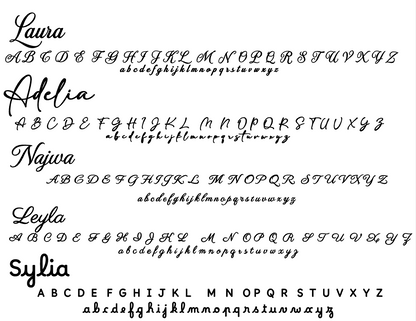 Laura
A B C D E F G H I J K L M N O P Q R S T U V X Y Z
abcdefghijklmnopqrstuvwxyz
Adelia
A B C D E F G H I J K L M N O P Q R S T U V X Y Z
abcdefghijklmnopqrstuvwxyz
Najwa
A B C D E F G H I J K L M N O P Q R S T U V X Y Z
abcdefghijklmnopqrstuvwxyz
Leyla
A B C D E F G H I J K L M N O P Q R S T U V X Y Z
abcdefghijklmnopqrstuvwxyz
Sylia
A B C D E F G H I J K L M N O P Q R S T U V X Y Z
abcdefghijklmnopqrstuvwxyz